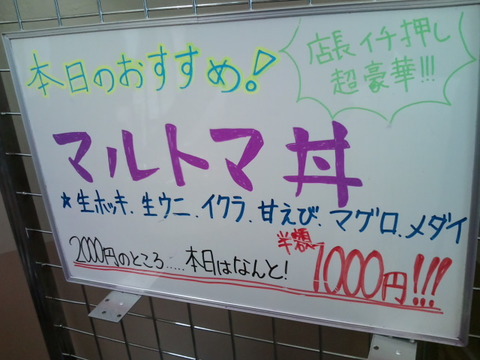 本日のおすすめ!
店長イチ押し
超豪華!!!
マルトマ丼
★生ホッキ.生ウニ.イクラ.甘えび.マグロ.メダイ
2000円のところ.....本日はなんと!半額1000円!!!